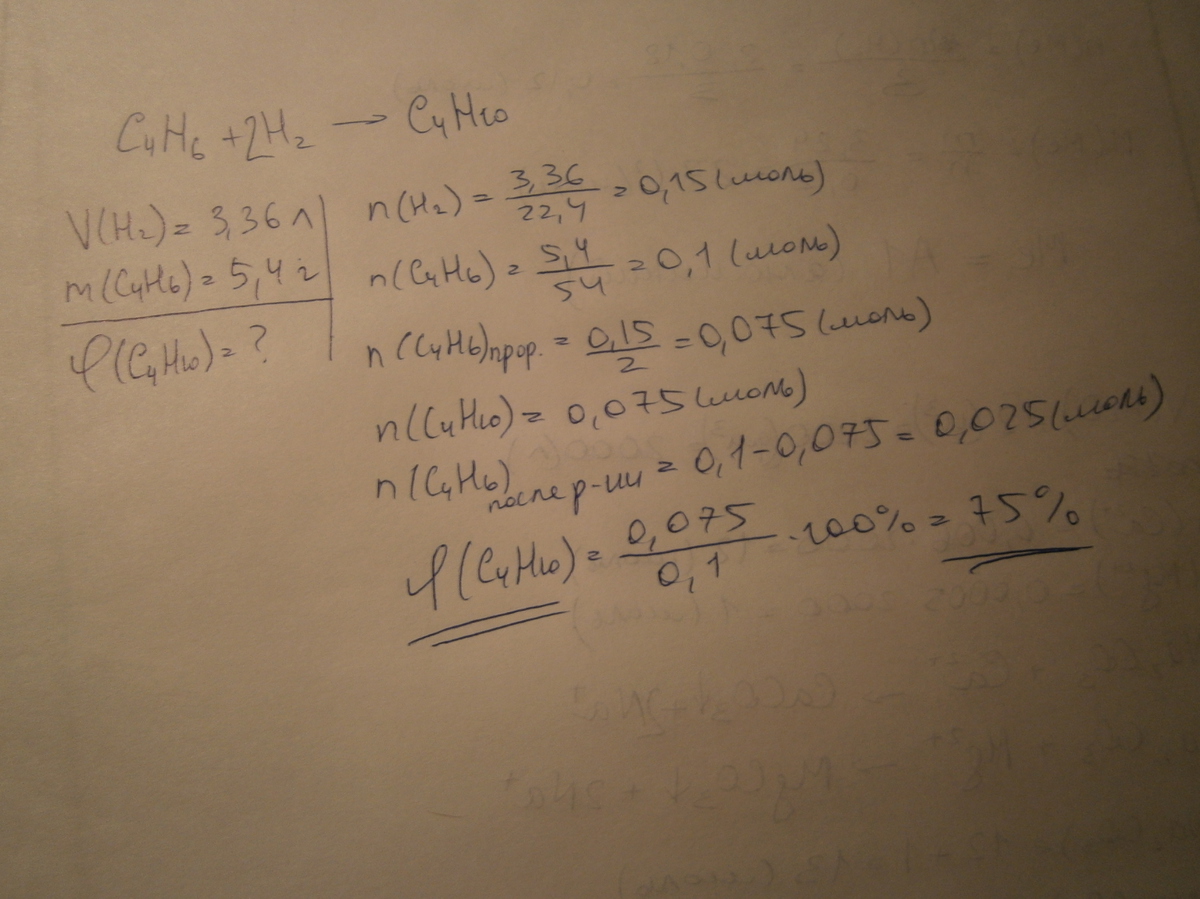 C₄H₆ + 2H₂ → C₄H₁₀
V(H₂) = 3,36 л
m(C₄H₆) = 5,4 г
φ(C₄H₁₀) = ?
n(H₂) = 3,36/22,4 = 0,15 (моль)
n(C₄H₆) = 5,4/54 = 0,1 (моль)
n(C₄H₆)прор. = 0,15/2 = 0,075 (моль)
n(C₄H₁₀) = 0,075 (моль)
n(C₄H₆) после р-ии = 0,1 - 0,075 = 0,025 (моль)
φ(C₄H₁₀) = 0,075/0,1 · 100% = 75%